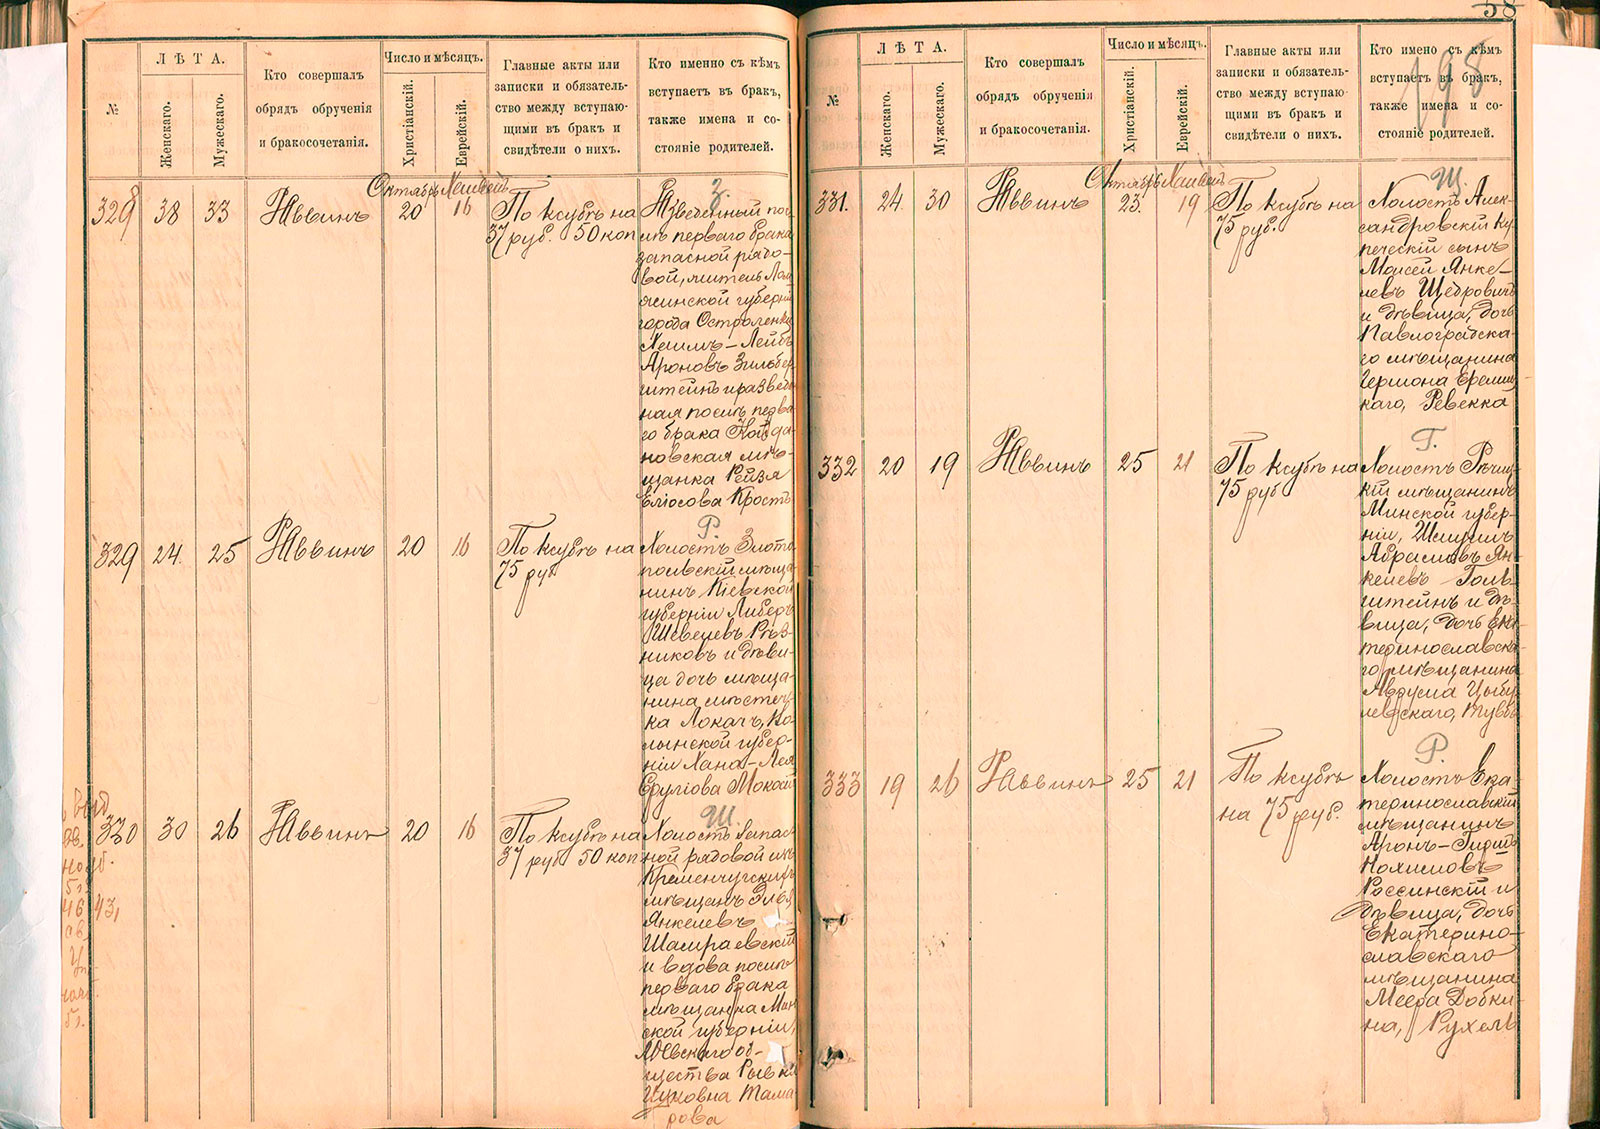 58
198
№
ЛѢТА.
Женскаго.
Мужескаго.
Кто совершалъ
обрядъ обрученія
и бракосочетанія.
Число и мѣсяцъ.
Христіанскій.
Еврейскій.
Главные акты или
записки и обязатель-
ство между вступаю-
щими въ бракъ и
свидѣтели о нихъ.
Кто именно съ кѣмъ
вступаетъ въ бракъ,
также имена и со-
стояніе родителей.
328 38 33 Раввинъ
Октябрь Хешвенъ
20 16
По ксубѣ на
37 руб. 50 коп
З.
Разведенный пос-
лѣ перваго брака
запасной рядо-
вой, житель Лом-
жинской губерніи
города Остроленки
Хаимъ-Лейбъ
Ароновъ Зильбер
штейнъ и разведе
ная послѣ перва
го брака Койда
новская мѣ-
щанка Рейзя
Еліосова Кростъ
329 24 25 Раввинъ 20 16
По ксубѣ на
75 руб
Р.
Холостъ Злото
польскій мѣща
нинъ Кіевской
губерніи Либеръ
Шевелевъ Рѣз-
никовъ и дѣви-
ца дочь мѣща-
нина мѣстеч-
ка Локачъ, Во-
лынской губер-
ніи Хана-Лея
330 30 26 Раввинъ 20 16
По ксубѣ на
37 руб 50 коп
Ш.
Холостъ Запас-
ной рядовой изъ
Кременчугскихъ
мѣщанъ Элья
Янкелевъ
Шамраевскій
и вдова послѣ
перваго брака
мѣщанка Мин
ской губерніи,
общества Рывка
Ицковна Тама
рова
№
ЛѢТА.
Женскаго.
Мужескаго.
Кто совершалъ
обрядъ обрученія
и бракосочетанія.
Число и мѣсяцъ.
Христіанскій.
Еврейскій.
Главные акты или
записки и обязатель-
ство между вступаю-
щими въ бракъ и
свидѣтели о нихъ.
Кто имено съ кѣмъ
вступаетъ въ бракъ,
также имена и со-
стояніе родителей.
331. 24 30 Раввинъ
Октябрь Хешвенъ
23. 19
По ксубѣ на
75 руб.
Щ.
Холостъ Алек-
сандровскій ку
печескій сынъ
Моисей Янке-
левъ Щедровичъ
и дѣвица, дочь
Павлоградска-
го мѣщанина
Гершона Еремиц
каго, Ревекка
332 20 19 Раввинъ 25 21
По ксубѣ на
75 руб
Г.
Холостъ Рѣчиц
кій мѣщанинъ
Минской губер-
ніи, Шлиомъ
Абрамовъ Ян-
келевъ Голь
штейнъ и дѣ-
вица, дочь Ека
теринославска-
го мѣщанина
Аврума Цыбу
левскаго, Туба
333 19 26 Раввинъ 25 21
По ксубѣ
на 75 руб.
Р.
Холостъ Ека-
теринославскій
мѣщанинъ
Аронъ-Гиршъ
Нохимовъ
Россинскій и
дѣвица, дочь
Екатерино-
славскаго
мѣщанина
Меера Добки-
на, Рухель